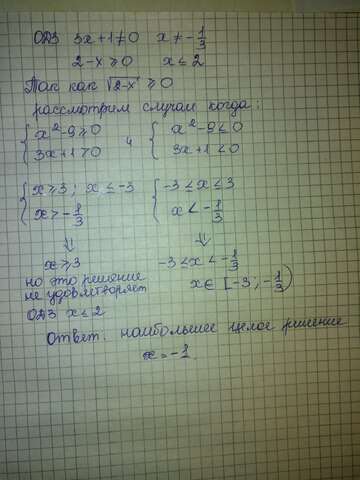 ОДЗ 3x+1≠0 x≠-1/3
2-x≥0 x≤2
Так как √2-x ≥0
рассмотрим случаи когда:
{ x²-9≥0 и { x²-9≤0
3x+1>0 3x+1<0
{ x≥3; x≤-3 { -3≤x≤3
x>-1/3 x<-1/3
⇓ ⇓
x≥3 -3≤x<-1/3
но это решение x∈[-3;-1/3)
не удовлетворяет
ОДЗ x≤2
Ответ: наибольшее целое решение
x=-1.